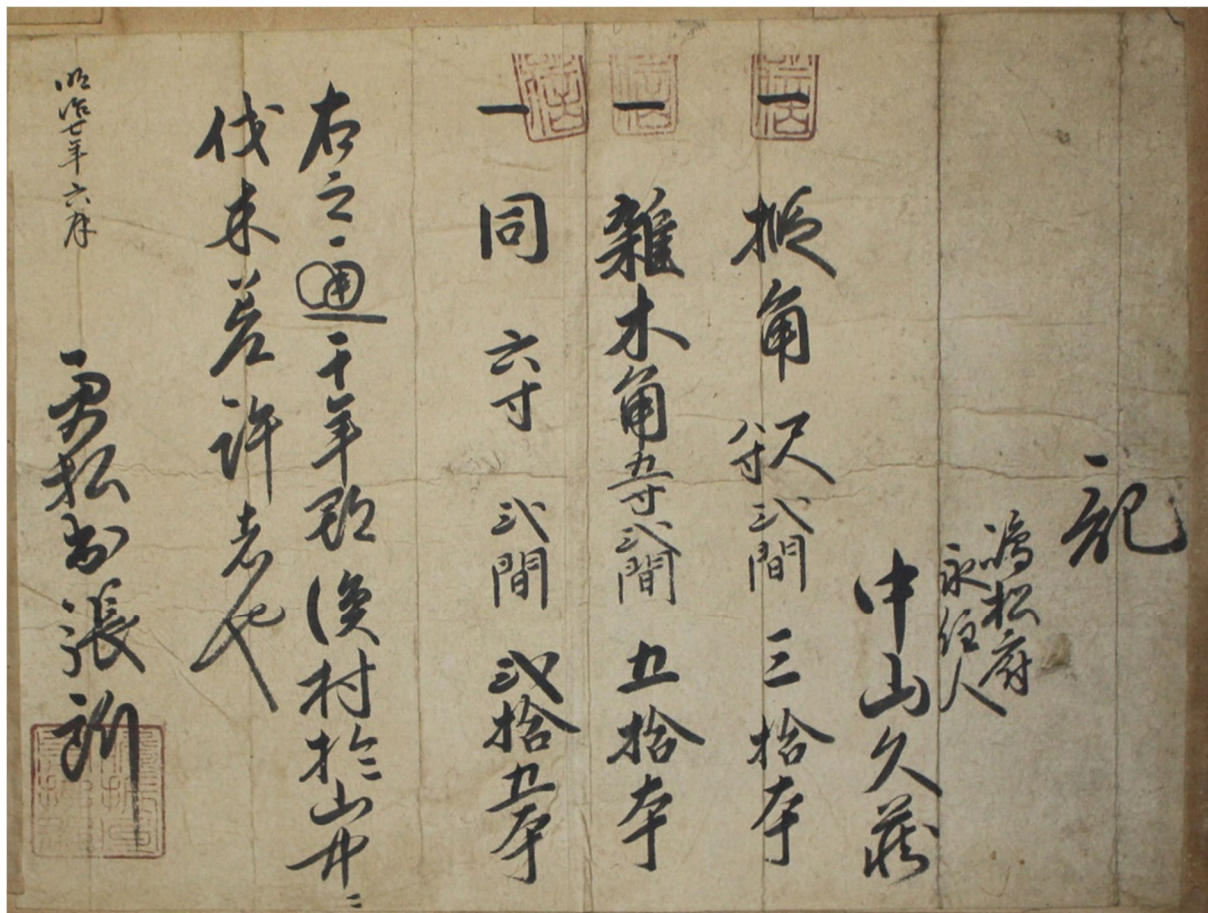 記
嶋松
永住人
中山久蔵
一 椴角 尺 八寸 弐間 三拾本
一 雑木角 五寸 弐間 五拾本
一 同 六寸 弐間 弐拾五本
右之通千年郡漁村於山中ニ
伐木差許者也
明治七年六月
勇払出張所